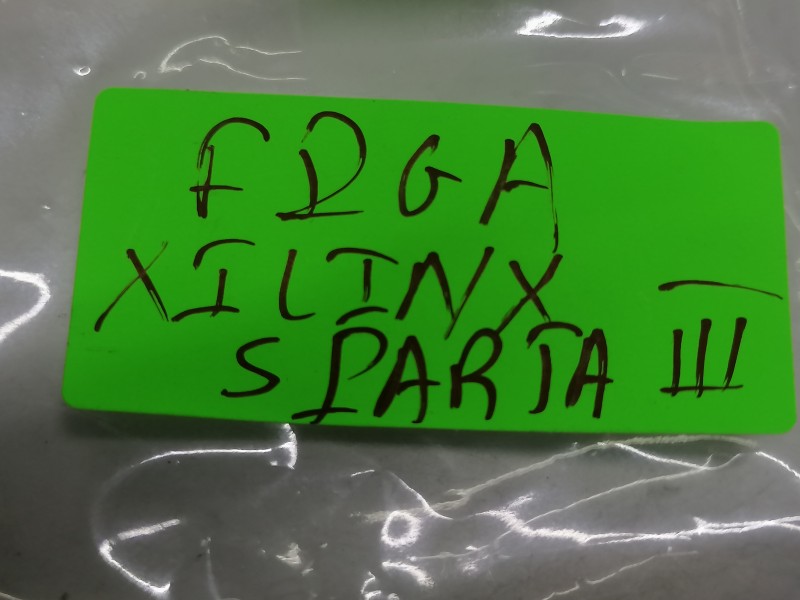 FPGA
XILINX
SPARTA III